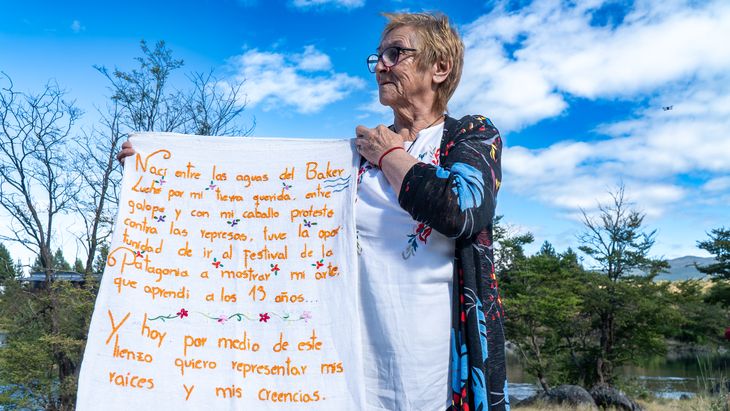 Naci entre las aguas del Baker
Luche por mi tierra querida, entre
galope y con mi caballo proteste
contra las represas, tuve la opor
tunidad de ir al festival de la
Patagonia a mostrar mi arte
que aprendi a los 13 años...
Y hoy por medio de este
lienzo quiero representar mis
raíces y mis creencias.